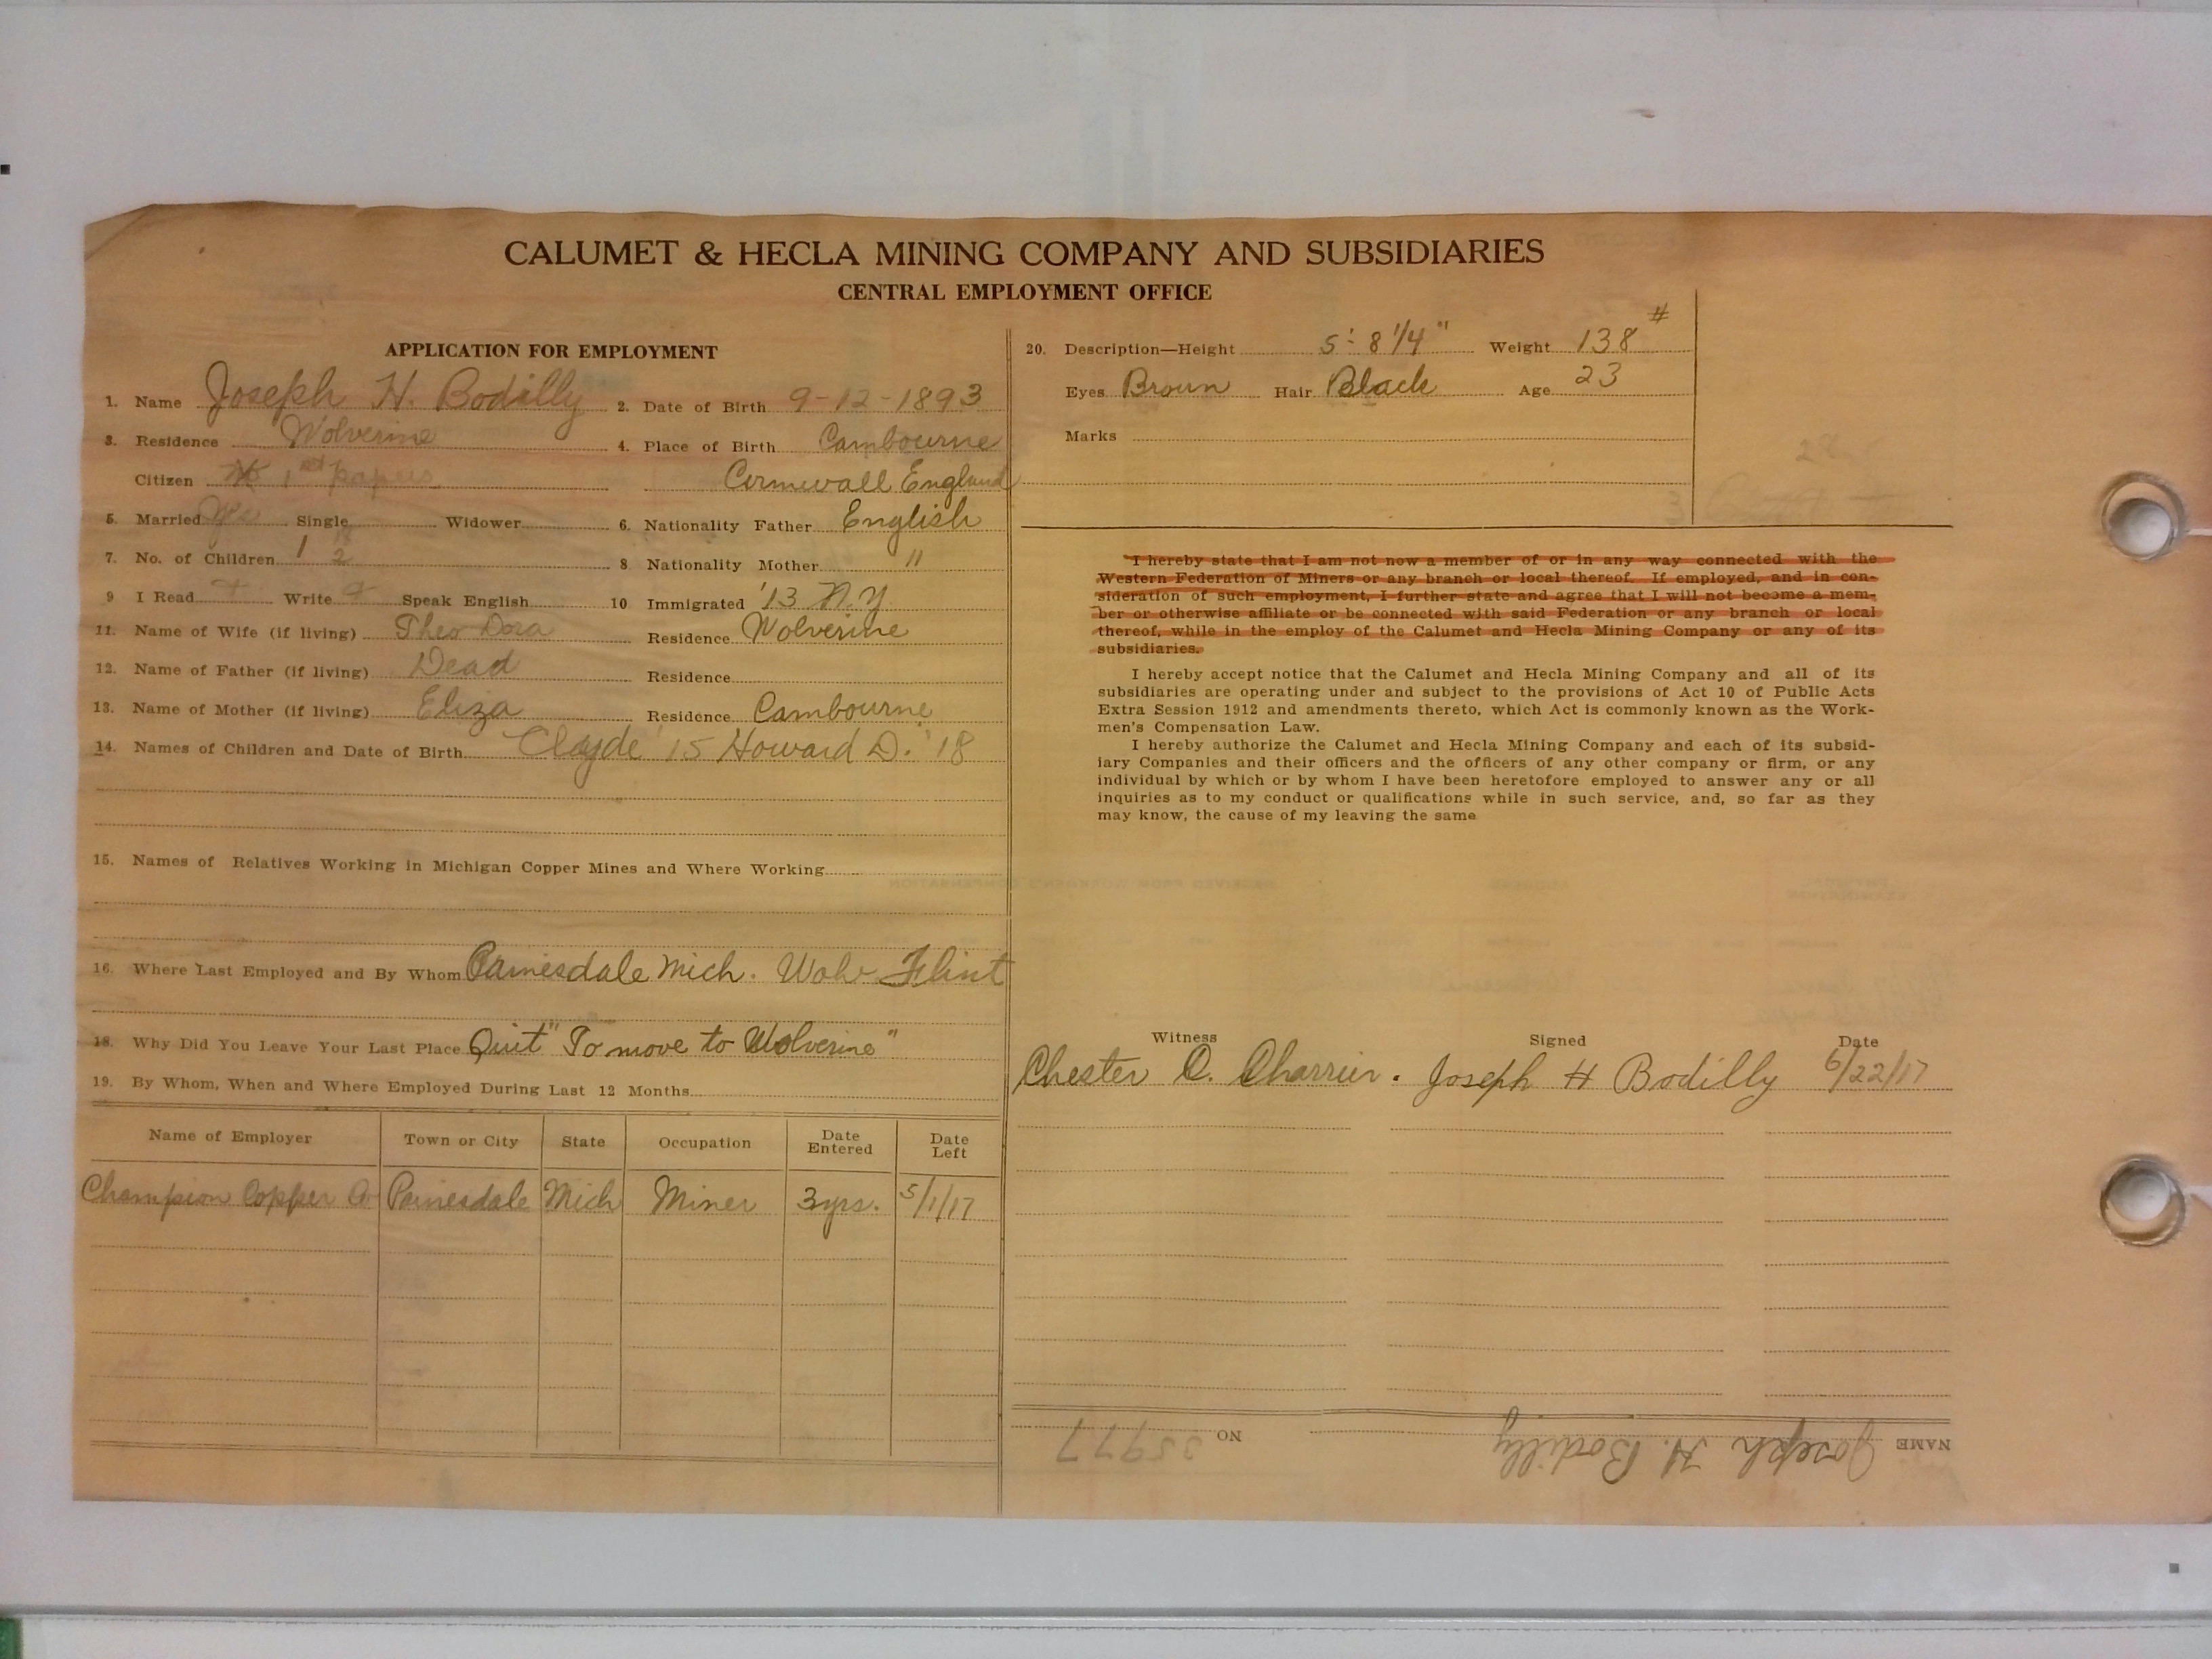 CALUMET & HECLA MINING COMPANY AND SUBSIDIARIES
CENTRAL EMPLOYMENT OFFICE
APPLICATION FOR EMPLOYMENT
1. Name Joseph H. Bodilly 2. Date of Birth 9-12-1893
3. Residence Wolverine 4. Place of Birth Cambourne
Citizen 1st papers Cornwall England
5. Married Yes Single Widower 6. Nationality Father English
7. No. of Children 1 2 8 Nationality Mother "
9 I Read Write Speak English 10 Immigrated '13 N.Y.
11. Name of Wife (if living) Theo Dora Residence Wolverine
12. Name of Father (if living) Dead Residence
13. Name of Mother (if living) Eliza Residence Cambourne
14. Names of Children and Date of Birth Clayde '15 Howard D. '18
15. Names of Relatives Working in Michigan Copper Mines and Where Working
16. Where Last Employed and By Whom Painesdale Mich. Flint
18. Why Did You Leave Your Last Place Quit "To move to Wolverine"
19. By Whom, When and Where Employed During Last 12 Months
Name of Employer Town or City State Occupation Date Entered Date Left
Champion Copper Co Painesdale Mich Miner 3yrs. 5/1/17
20. Description—Height 5' 8 1/4" Weight 138 #
Eyes Brown Hair Black Age 23
Marks
I hereby state that I am not now a member of or in any way connected with the
Western Federation of Miners or any branch or local thereof. If employed, and in con-
sideration of such employment, I further state and agree that I will not become a mem-
ber or otherwise affiliate or be connected with said Federation or any branch or local
thereof, while in the employ of the Calumet and Hecla Mining Company or any of its
subsidiaries.
I hereby accept notice that the Calumet and Hecla Mining Company and all of its
subsidiaries are operating under and subject to the provisions of Act 10 of Public Acts
Extra Session 1912 and amendments thereto, which Act is commonly known as the Work-
men's Compensation Law.
I hereby authorize the Calumet and Hecla Mining Company and each of its subsid-
iary Companies and their officers and the officers of any other company or firm, or any
individual by which or by whom I have been heretofore employed to answer any or all
inquiries as to my conduct or qualifications while in such service, and, so far as they
may know, the cause of my leaving the same
Witness Signed Date
Chester O. Charrier. Joseph H Bodilly 6/22/17
NAME Joseph H. Bodilly NO 35977